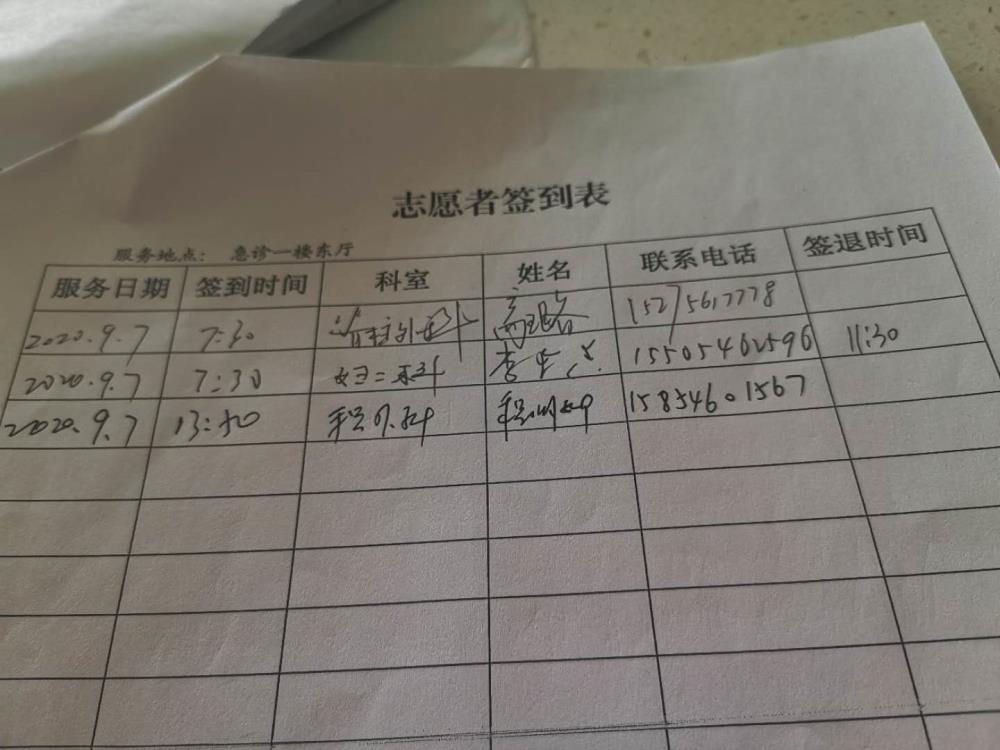 志愿者签到表
服务地点： 急诊一楼东厅
服务日期 签到时间 科室 姓名 联系电话 签退时间
2020.9.7 7:30 脊柱外科 高璐 15275617778
2020.9.7 7:30 妇二科 李 15505462596 11:30
2020.9.7 13:50 外科 15854601567